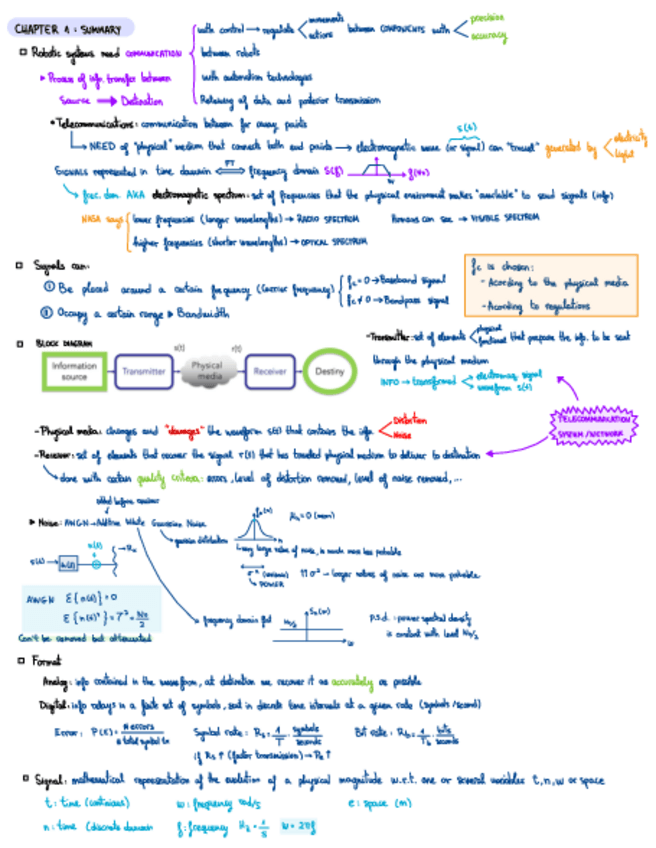 CHAPTER 1: SUMMARY
with control → regulate movements actions between COMPONENTS with precision accuracy
□ Robotic systems need COMMUNICATION
between robots
▸ Process of info. transfer between
with automation technologies
Source → Destination
Relaying of data and posterior transmission
• Telecommunications: communication between far away points
s(t)
NEED of "physical" medium that connects both end points → electromagnetic wave (or signal) can "travel" generated by electricity light
SIGNALS represented in time domain FT frequency domain S(f) f(Hz)
frec. dom. AKA electromagnetic spectrum: set of frequencies that the physical environment makes "available" to send signals (info)
NASA says lower frequencies (longer wavelengths) → RADIO SPECTRUM Humans can see → VISIBLE SPECTRUM
higher frequencies (shorter wavelengths) → OPTICAL SPECTRUM
□ Signals can:
fc is chosen:
① Be placed around a certain frequency (Carrier frequency) fc = 0 → Baseband signal
- Acording to the physical media
fc ≠ 0 → Bandpass signal
② Occupy a certain range ▸ Bandwidth
- Acording to regulations
□ BLOCK DIAGRAM
s(t) r(t)
Information source Transmitter Physical media Receiver Destiny
- Transmitter: set of elements physical functional that prepare the info. to be sent
through the physical medium
INFO → transformed electromag. signal waveform s(t)
TELECOMMUNICATION
SYSTEM/NETWORK
- Physical media: changes and "damages" the waveform s(t) that contains the info. Distortion Noise
- Receiver: set of elements that recover the signal r(t) that has traveled physical medium to deliver to destination
done with certain quality criteria: errors, level of distortion removed, level of noise removed, ...
added before receiver
▸ Noise: AWGN → Additive White Gaussian Noise
gaussian distribution
fn(n)
= 0 (mean)
very large value of noise, is much more less probable
n(t)
s(t)
σ² (variance)
POWER
↑↑ σ² → larger values of noise are more probable
AWGN E{n(t)} = 0
E{n(t)²} = σ² = N₀/2
Can't be removed but attenuated
frequency domain flat N₀/2 Sn(w) w
p.s.d.: power spectral density
is constant with level N₀/2
□ Format
Analog: info contained in the waveform, at destination we recover it as accurately as possible
Digital: info relays in a finite set of symbols, sent in discrete time intervals at a given rate (symbols/second)
Error: P(E) = N errors / N total symbol tx Symbol rate: Rs = 1/T symbols/seconds Bit rate: Rb = 1/Tb bits/seconds
if Rs ↑ (faster transmission) → Pe ↑
□ Signal: mathematical representation of the evolution of a physical magnitude w.r.t. one or several variables t, n, w or space
t: time (continuous) w: frequency rad/s e: space (m)
n: time (discrete domain f: frequency Hz = 1/s w = 2πf